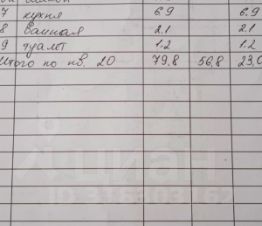 7 кухня 6.9 6.9
8 ванная 2.1 2.1
9 туалет 1.2 1.2
Итого по кв. 20 79,8 56,8 23,0